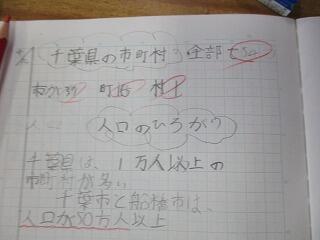 千葉県の市町村 全部で54
町16 村1
人口のひろがり
千葉県は、1万人以上の
市町村が多い
千葉市と船橋市は、
人口が50万人以上